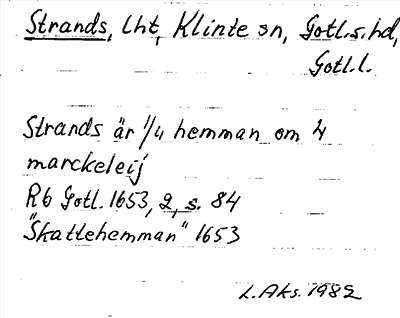 Strands, lht, Klinte sn, Gotl.s.hd,
Gotl.l.
Strands är 1/4 hemman om 4
marckeleij
Rb Gotl. 1653, 2, s. 84
"Skattehemman" 1653
L. Aks. 1982